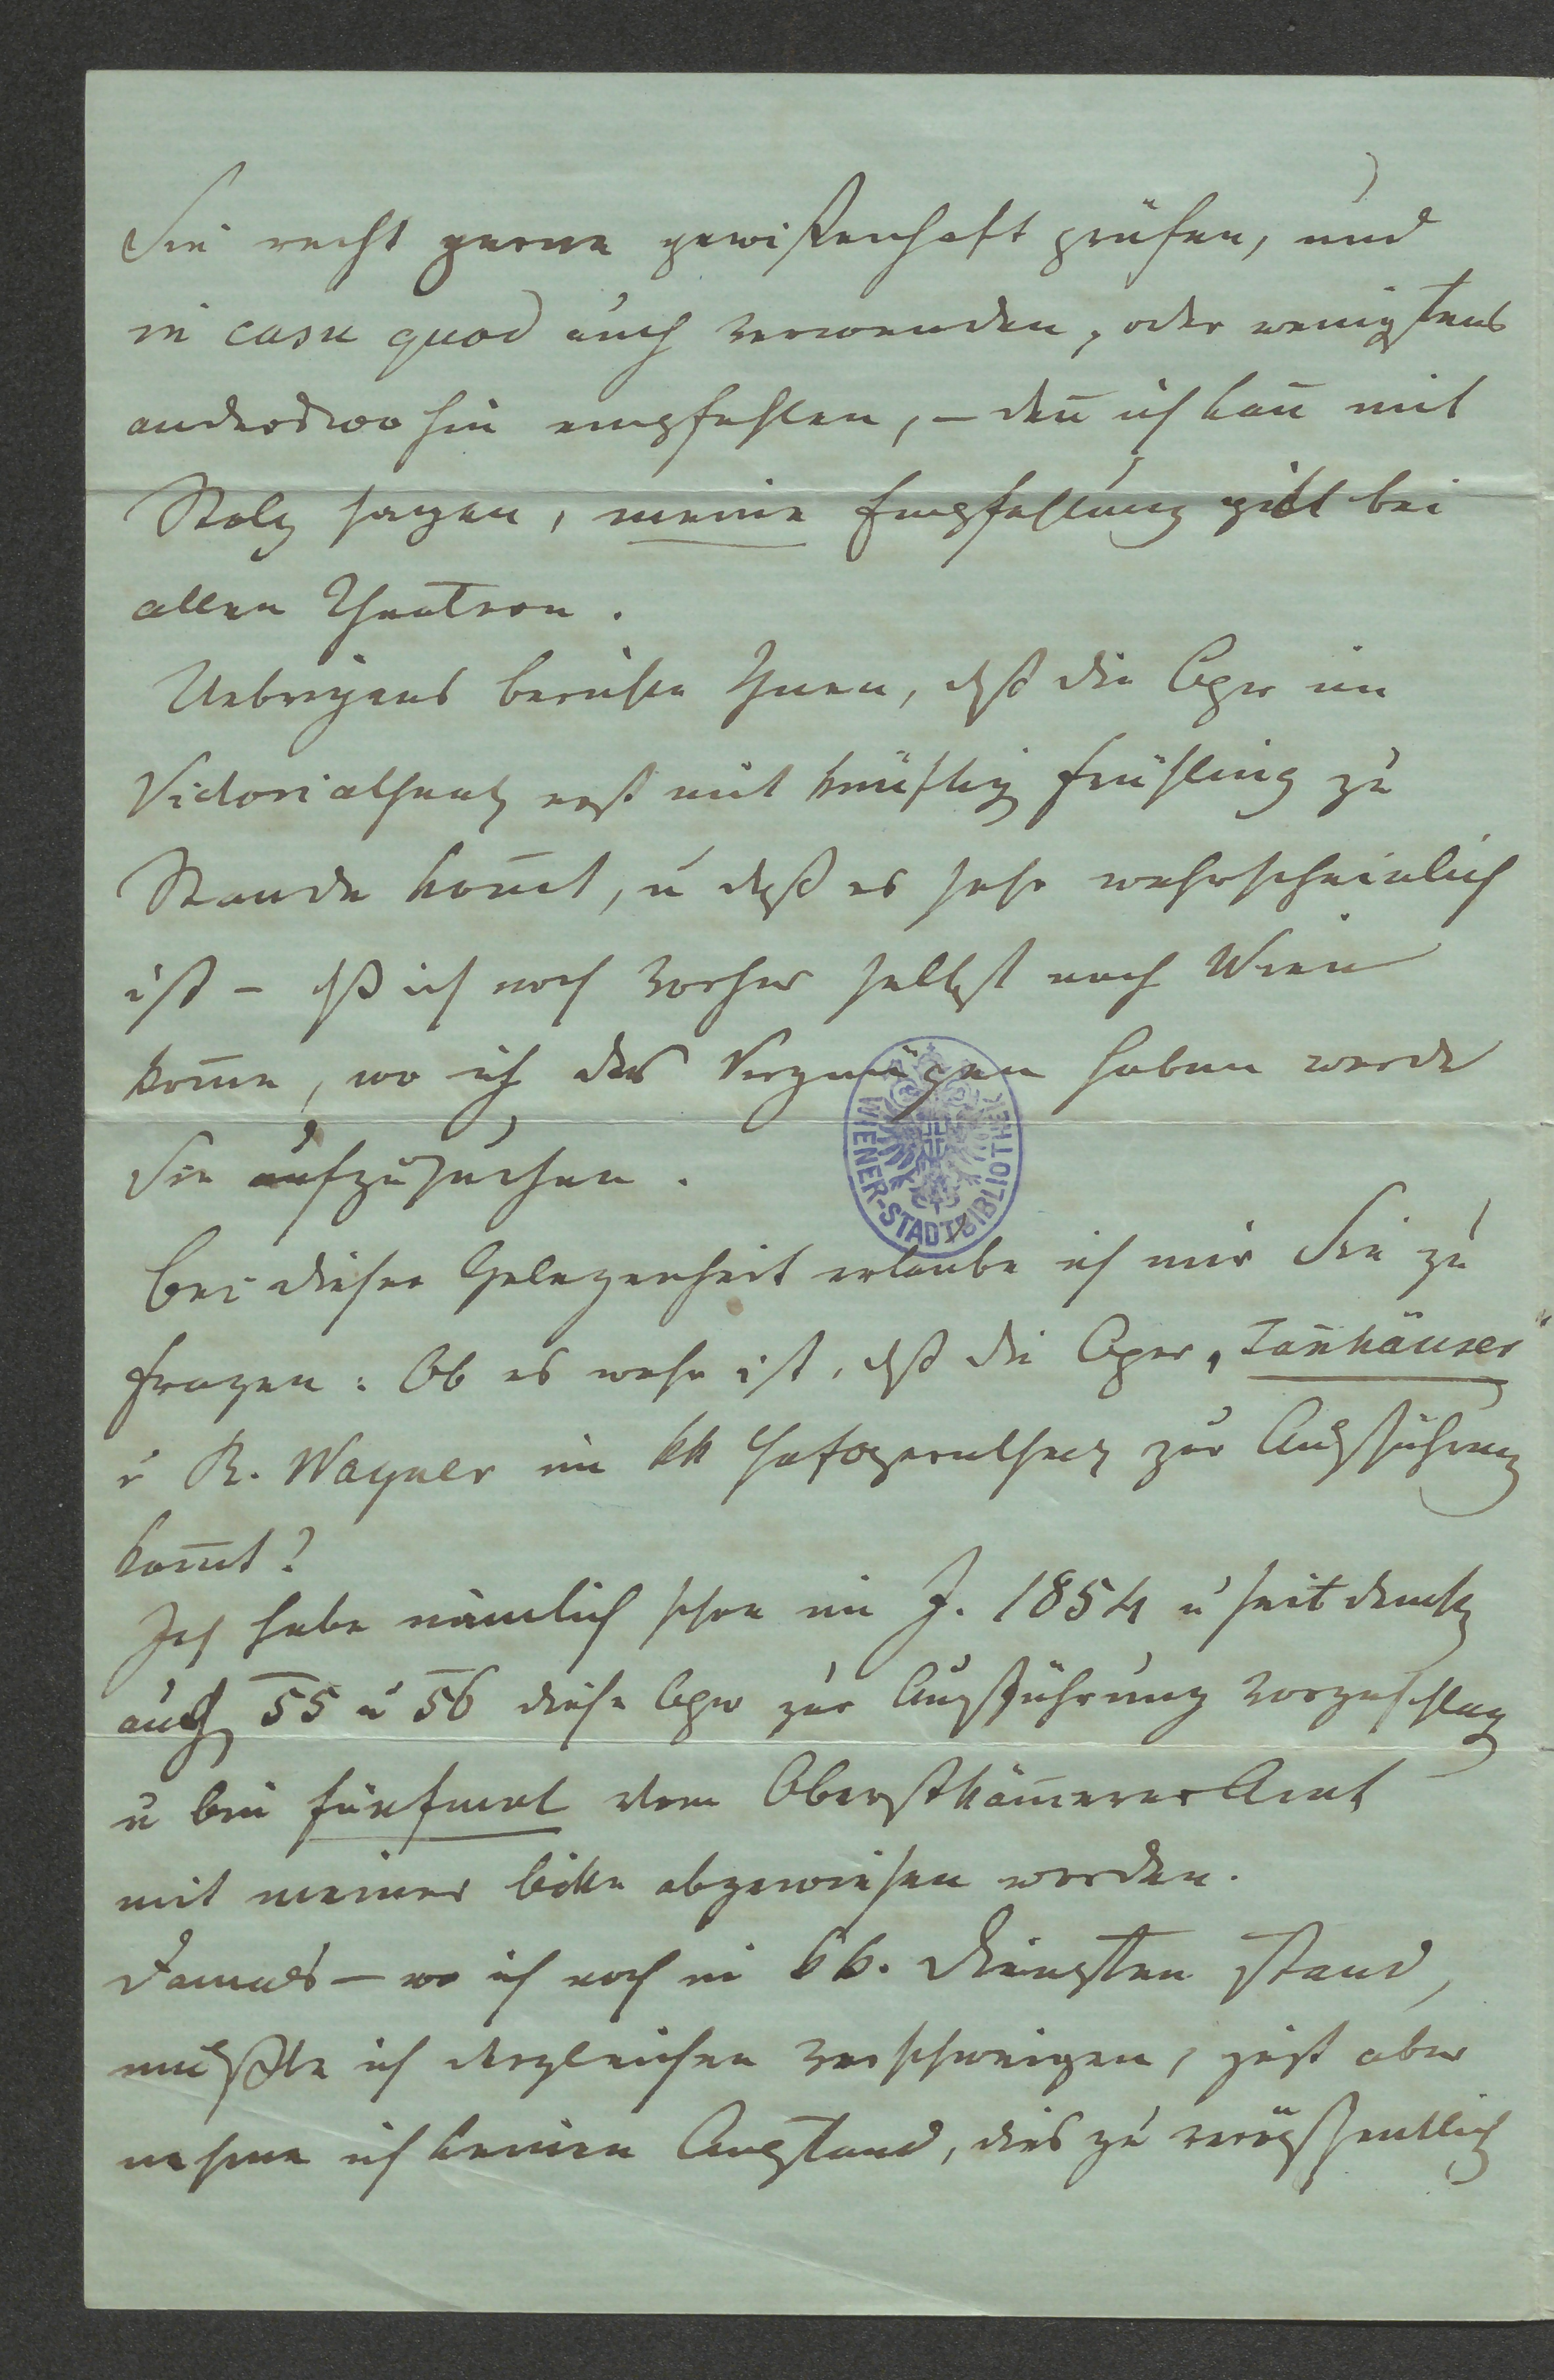 Sie recht gerne gewißenhaft prüfen, und
in casu quod auch verwenden, oder wenigstens
anderswo hin empfehlen, – den̄ ich kan̄ mit
Stolz sagen, meine Empfehlung gilt bei
allen Theatern.
Uebrigens berichte Ihnen, dß die Oper im
Victoriatheat erst mit künftig Frühling zu
Stande kom̄t, u daß es sehr wahrscheinlich
ist – dß ich noch vorher selbst nach Wien
kom̄e, wo ich das Vergnügen haben werde
Sie aufzusuchen.
Bei dieser Gelegenheit erlaube ich mir Sie zu
fragen: Ob es wahr ist, dß die Oper „Tan̄häuser"
v R. Wagner im kk Hofoperntheat zur Aufführung
kom̄t?
Ich habe nämlich schon im J. 1854 u seit dem
auch 55 u 56 diese Oper zur Aufführung vorgeschlag
u bin fünfmal vom Oberstkäm̄ererAmt
mit meiner Bitte abgewiesen worden.
Damals – wo ich noch in kk. Diensten stand,
mußte ich dergleichen verschweigen, jetzt aber
nehme ich keinen Anstand, dies zu veröffentlich
WIENER-STADTBIBLIOTHEK